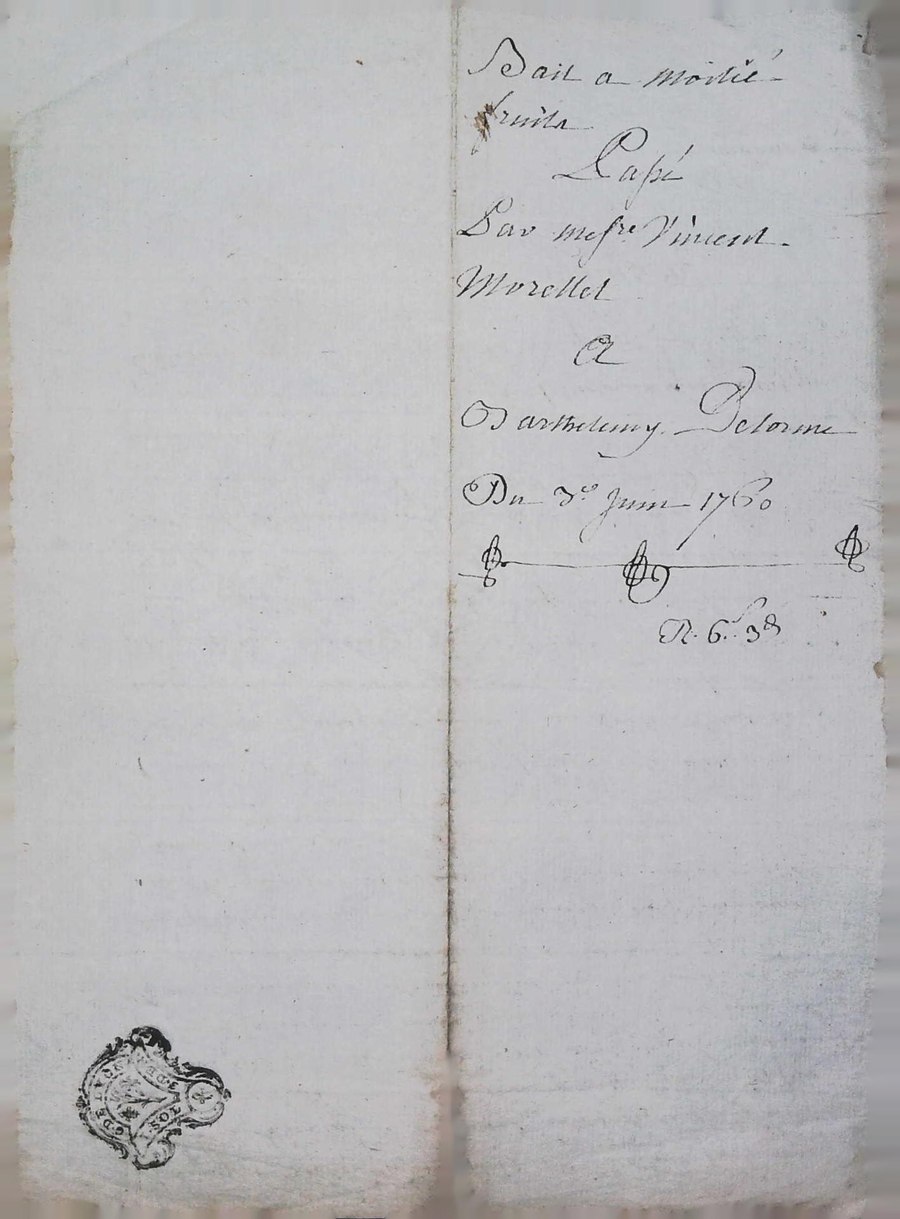 Bail a moitié
fruits
Passé
Par mesre Vincent
Morellet
A
Barthelemy Delorme
Du 3e Juin 1760
R. 6s 3d
G DE LYON
SOL